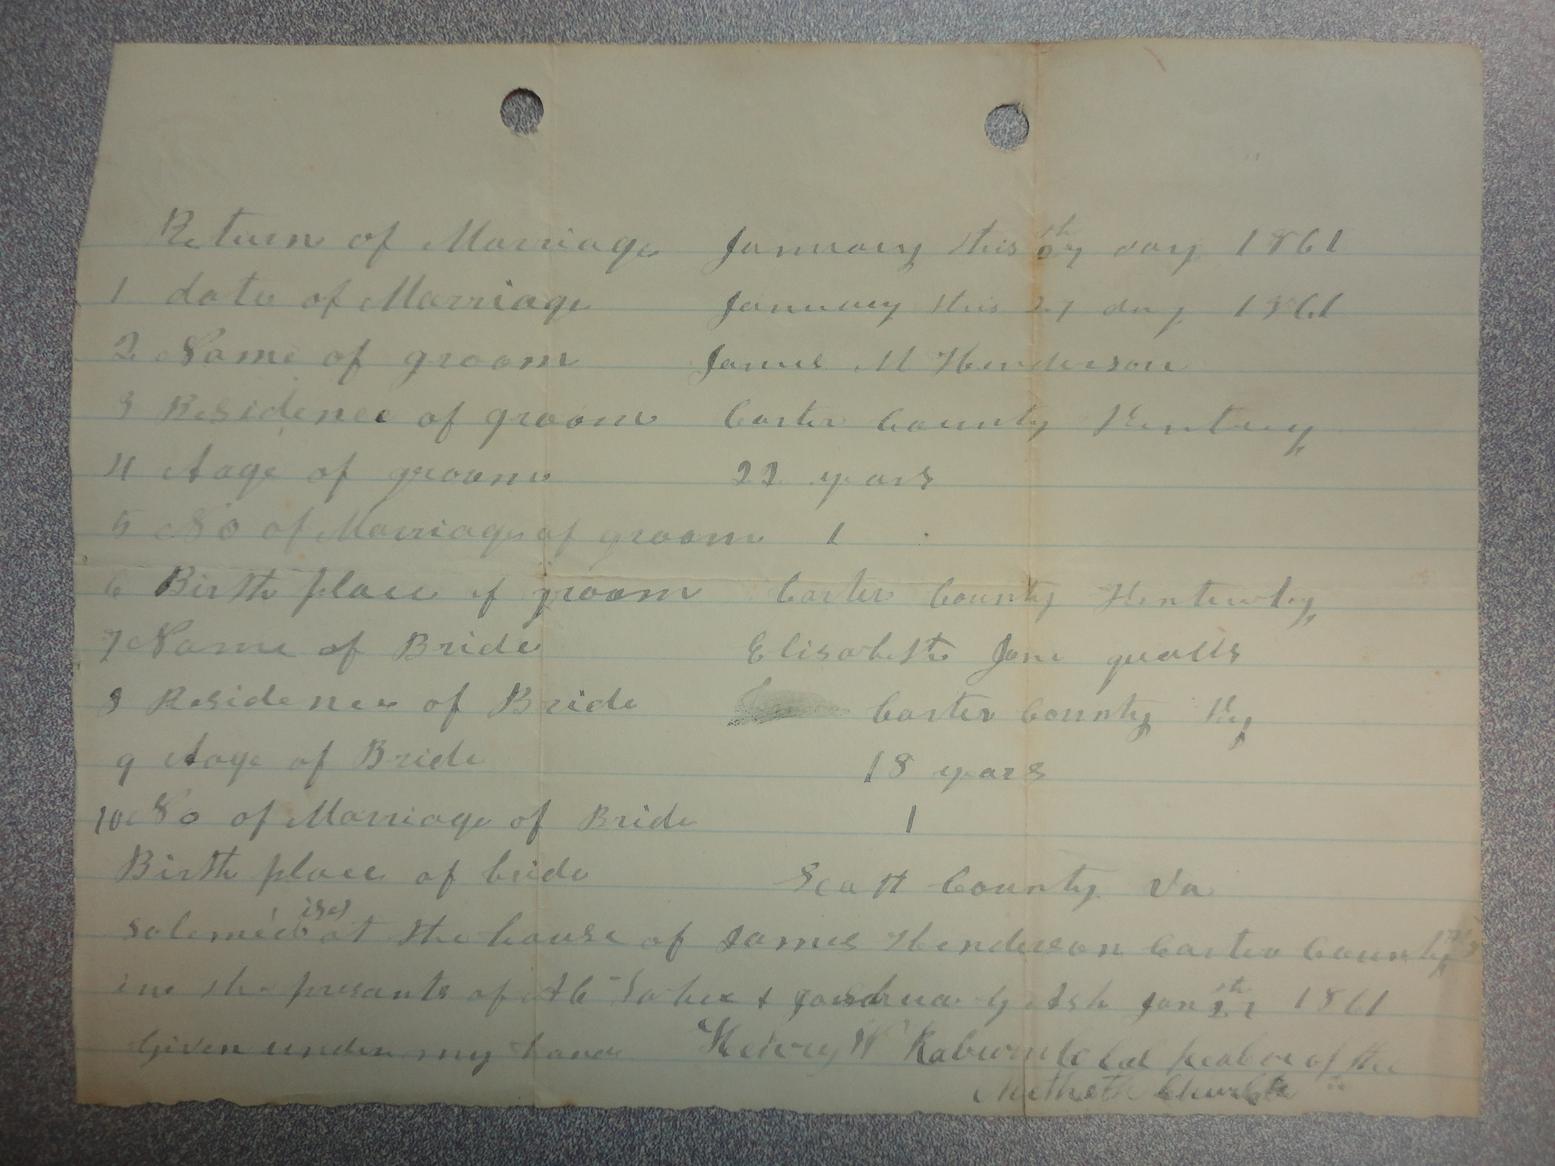 Return of Marriage January this day 1861
1 date of Marriage January this 27 day 1861
2 Name of groom James M Henderson
3 Residence of groom Carter County Kentucy
4 Aage of groom 22 years
5 No of Marriage of groom 1
6 Birth place of groom Carter County Kentucky
7 Name of Bride Elisabeth Jane qualls
8 Residence of Bride Carter County Ky
9 Aage of Bride 18 years
10 No of Marriage of Bride 1
Birth place of bride Scott County Va
ised
at the house of James Henderson Carter County Ky
in the presants of & Jan 1861
Given under my hand Henry W of the
Church